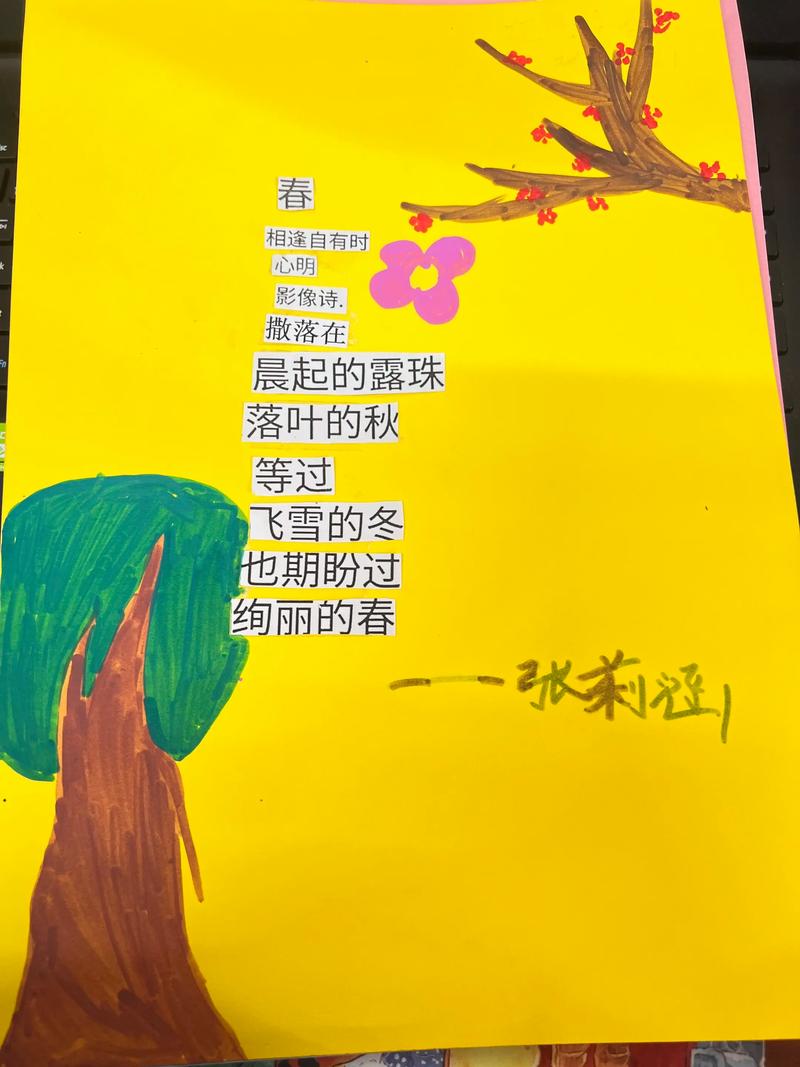 春
相逢自有时
心明
影像诗.
撒落在
晨起的露珠
落叶的秋
等过
飞雪的冬
也期盼过
绚丽的春
——张莉涵